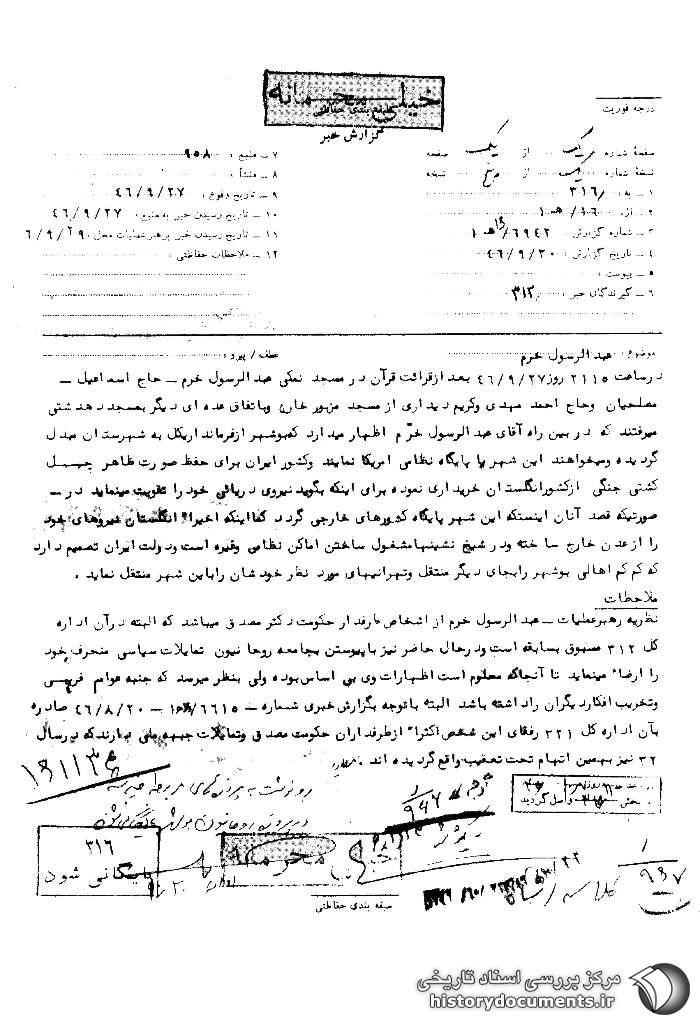 خیلی محرمانه
طبقه بندی حفاظتی
گزارش خبر
درجه فوریت
صفحهٔ شماره یک از یک صفحه
نسخهٔ شماره یک از پنج نسخه
۱ ـ به : ۳۱۶
۲ ـ از : ۱۶/ هـ ۱
۳ ـ شماره گزارش : ۶۹۴۲/
۴ ـ تاریخ گزارش : ۴۶/۹/۳۰
۵ ـ پیوست :
۶ ـ گیرندگان خبر : ۳۱۲
۷ ـ منبع : ۹۵۸
۸ ـ منشأ :
۹ ـ تاریخ وقوع : ۴۶/۹/۲۷
۱۰ ـ تاریخ رسیدن خبر به منبع : ۴۶/۹/۲۷
۱۱ ـ تاریخ رسیدن خبر برهبر عملیات محل : ۶/۹/۲۹
۱۲ ـ ملاحظات حفاظتی :
موضوع : عبدالرسول خرم
عطف / پیرو :
در ساعت ۲۱۱۵ روز ۴۶/۹/۲۷ بعد از قرائت قرآن در مسجد نمکی عبدالرسول خرم ـ حاج اسماعیل ـ
مصلحیان وحاج احمد مهدی وکریم دیداری از مسجد مزبور خارج وباتفاق عده ای دیگر بمسجد دهدشتی
میرفتند که در بین راه آقای عبدالرسول خرّم اظهار میدارد که بوشهر از فرمانداریکل به شهرستان مبدل
گردیده ومیخواهند این شهر را پایگاه نظامی امریکا نمایند وکشور ایران برای حفظ صورت ظاهر چهل
کشتی جنگی از کشورانگلستان خریداری نموده برای اینکه بگوید نیروی دریائی خود را تقویت مینماید در ـ
صورتیکه قصد آنان اینستکه این شهر پایگاه کشورهای خارجی گردد کمااینکه اخیرا" انگلستان نیروهای خود
را از عدن خارج ساخته ودر شیخ نشینها مشغول ساختن اماکن نظامی وغیره است ودولت ایران تصمیم دارد
که کم کم اهالی بوشهر رابجای دیگر منتقل وتهرانیهای مورد نظر خودشان راباین شهر منتقل نماید .
ملاحظات
نظریه رهبرعملیات ـ عبدالرسول خرم از اشخاص طرفدار حکومت دکتر مصدق میباشد که البته در آن اداره
کل ۳۱۲ مسبوق بسابقه است ودرحال حاضر نیز با پیوستن بجامعه روحانیون تمایلات سیاسی منحرف خود
را ارضاء مینماید تا آنجاکه معلوم است اظهارات وی بی اساس بوده ولی بنظر میرسد که جنبه عوام فریبی
وتخریب افکاردیگران راداشته باشد البته باتوجه بگزارش خبری شماره ـ ۶۶۱۵/ ـ ۴۶/۸/۲۰ صادره
بآن اداره کل ۳۲۱ رفقای این شخص اکثرا" از طرفداران حکومت مصدق وتمایلات جبهه ملی دارند که در سال
۳۲ نیز بهمین اتهام تحت تعقیب واقع گردیده اند .
رونوشت به پرونده های مربوطه
در پرونده روحانیون بوشهر
۹۴۶
۳۱۶
بایگانی شود
خیلی محرمانه
طبقه بندی حفاظتی
بخش واصل گردید
کلاسه
۱
۹۳۷
مرکز بررسی اسناد تاریخی
historydocuments.ir